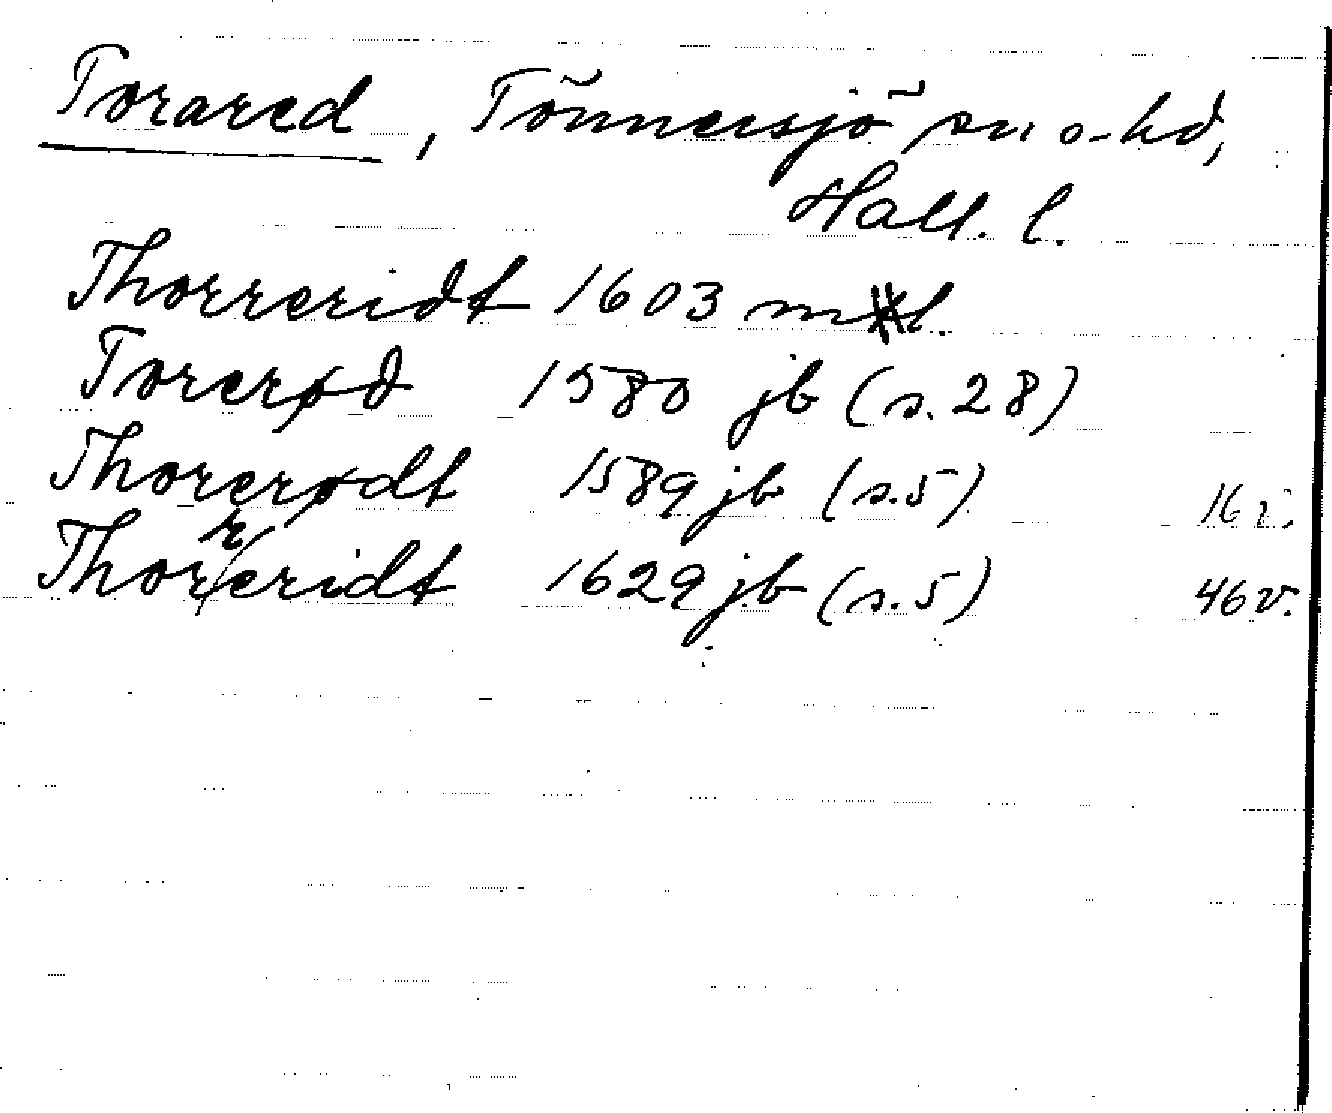 Torared, Tönnersjö sn o-hd,
Hall. l.
Thorreridt 1603 mtl.
Torerød 1580 jb (s.28)
Thorerødt 1589 jb (s.5) 16 v.
Thorreridt 1629 jb (s.5) 46 v.